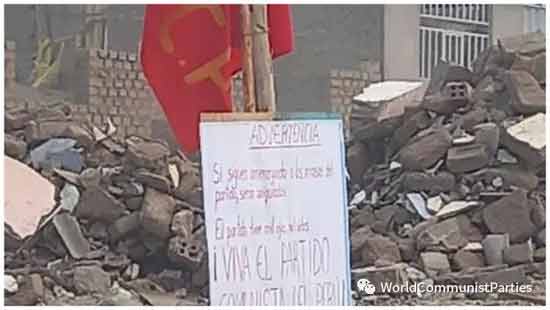 C.P.
ADVERTENCIA
Si siguen amenazando a las masas del
partido, seran aniquilados.
El partido tien mil ojos
¡ VIVA EL PARTIDO
COMUNISTA DEL PERU
WorldCommunistParties